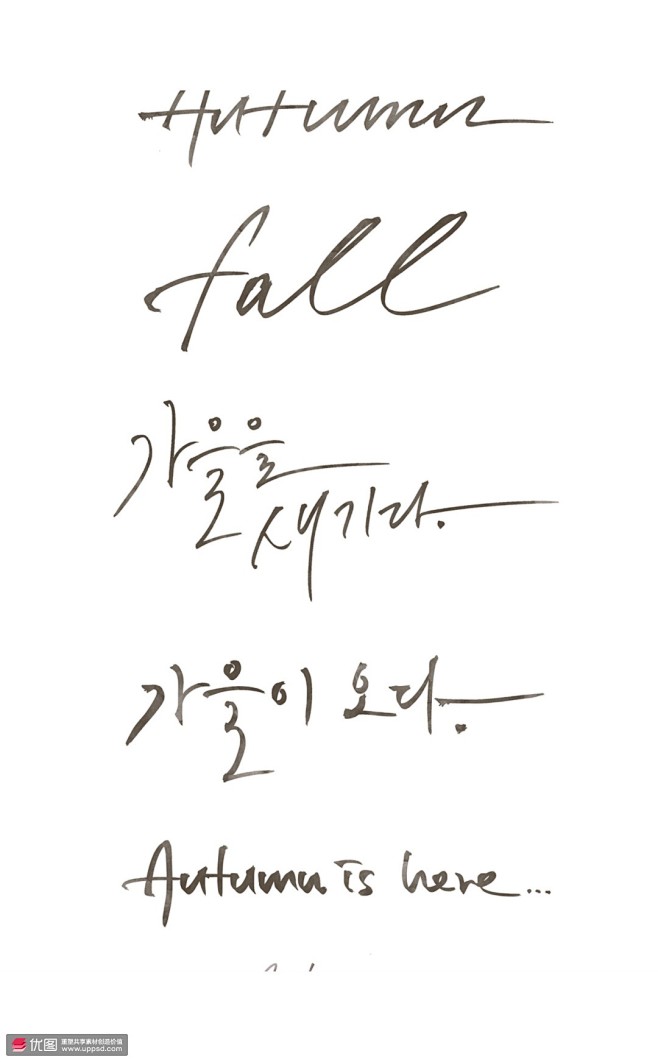 Autumn
fall
가을을
새기다.
가을이 오다.
Autumn is here...
优图 图塑共享素材创造价值
www.uppsd.com